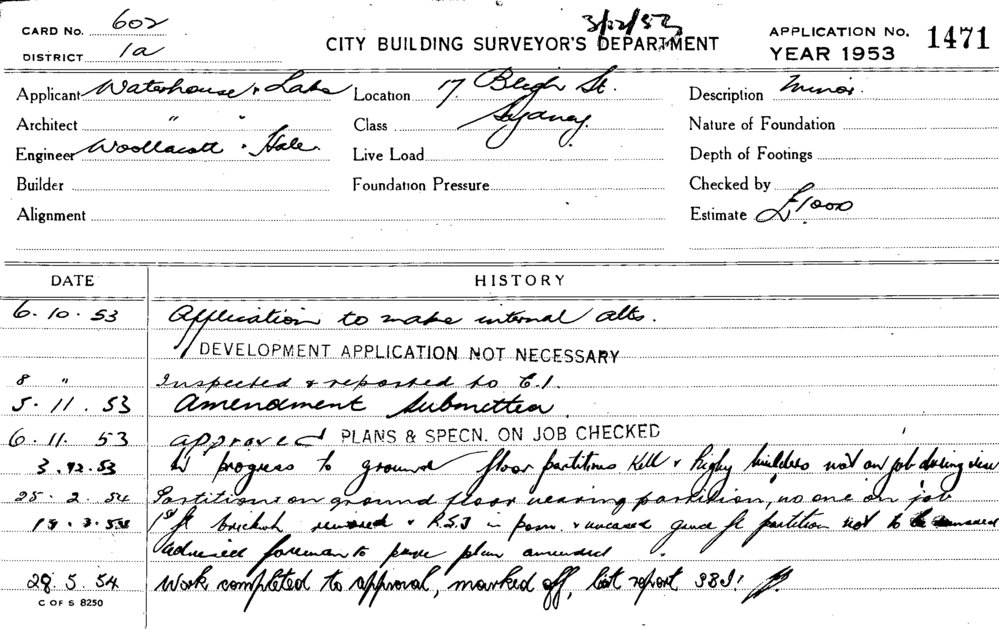 CARD No. 602
3/12/53
DISTRICT 1a
CITY BUILDING SURVEYOR'S DEPARTMENT
APPLICATION No. 1471
YEAR 1953
Applicant Waterhouse & Lake Location 17 Bligh St. Description Minor.
Architect " " Class Sydney. Nature of Foundation
Engineer Woollacott & Hale. Live Load Depth of Footings
Builder Foundation Pressure Checked by
Alignment Estimate £1000
DATE HISTORY
6. 10. 53 Application to make internal alts.
DEVELOPMENT APPLICATION NOT NECESSARY
8 " Inspected & reported to C.I.
5. 11. 53 Amendment submitted.
6. 11. 53 approved PLANS & SPECN. ON JOB CHECKED
3. 12. 53 In progress to ground floor partitions Kell & Rigby builders not on job during view
25. 2. 54 Partitions on ground floor nearing partition, no one on job
1st fl brickwk removed & R.S.J in & ground fl partition not to be
advised foreman to have plan amended
28. 5. 54 Work completed to approval, marked off, last report
C OF S 8250